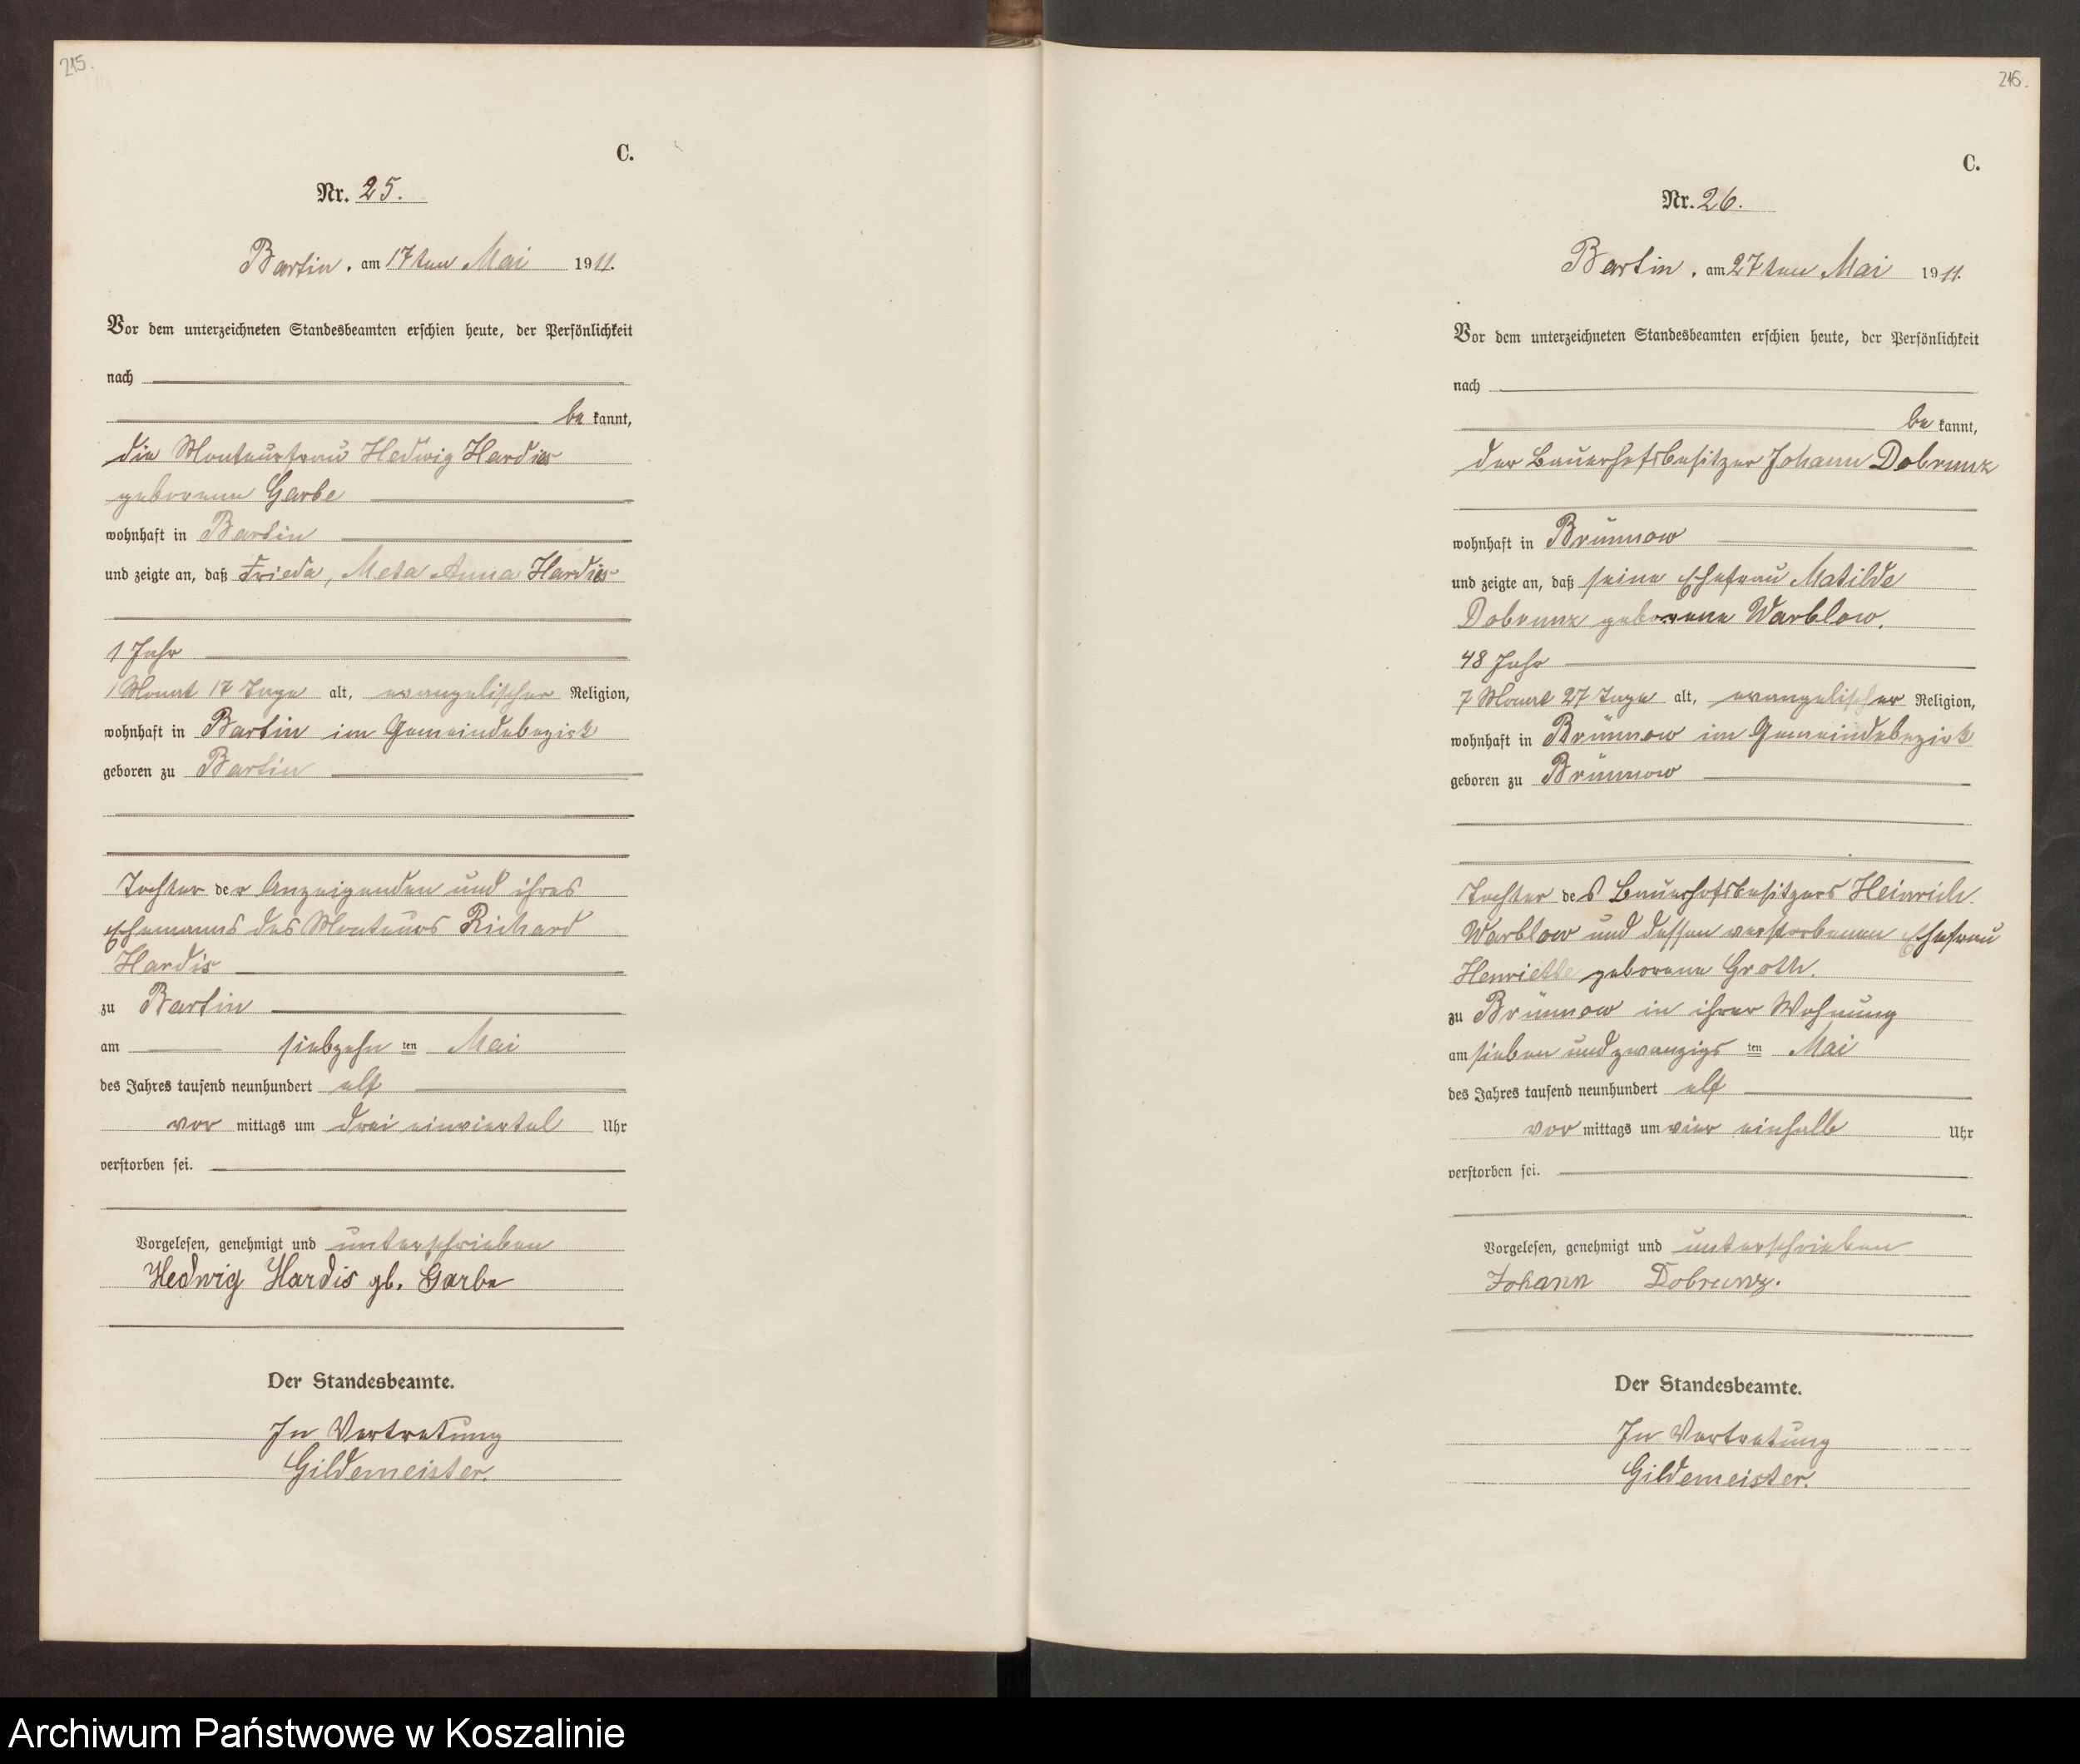 215.
C.
Nr. 25.
Bartin, am 17ten Mai 1911.
Vor dem unterzeichneten Standesbeamten erschien heute, der Persönlichkeit
nach
be kannt,
die Monteurfrau Hedwig Hardies
geborene Garbe
wohnhaft in Bartin
und zeigte an, daß Frieda, Meta Anna Hardies
1 Jahr
1 Monat 17 Tage alt, evangelischer Religion,
wohnhaft in Bartin im Gemeindebezirk
geboren zu Bartin
Tochter der Anzeigenden und ihres
Ehemanns des Monteurs Richard
Hardis
zu Bartin
am siebzehn ten Mai
des Jahres tausend neunhundert elf
vor mittags um drei einviertel Uhr
verstorben sei.
Vorgelesen, genehmigt und unterschrieben
Hedwig Hardis gb. Garbe
Der Standesbeamte.
In Vertretung
Gildemeister.
216.
C.
Nr. 26.
Bartin, am 27ten Mai 1911.
Vor dem unterzeichneten Standesbeamten erschien heute, der Persönlichkeit
nach
be kannt,
der Bauerhofsbesitzer Johann Dobrunz
wohnhaft in Brünnow
und zeigte an, daß seine Ehefrau Matilde
Dobrunz geborene Warblow.
48 Jahr
7 Monat 27 Tage alt, evangelischer Religion,
wohnhaft in Brünnow im Gemeindebezirk
geboren zu Brünnow
Tochter des Bauerhofsbesitzers Heinrich
Warblow und dessen verstorbenen Ehefrau
Henriette geborene Groth.
zu Brünnow in ihrer Wohnung
am sieben und zwanzigs ten Mai
des Jahres tausend neunhundert elf
vor mittags um vier einhalb Uhr
verstorben sei.
Vorgelesen, genehmigt und unterschrieben
Johann Dobrunz.
Der Standesbeamte.
In Vertretung
Gildemeister.
Archiwum Państwowe w Koszalinie